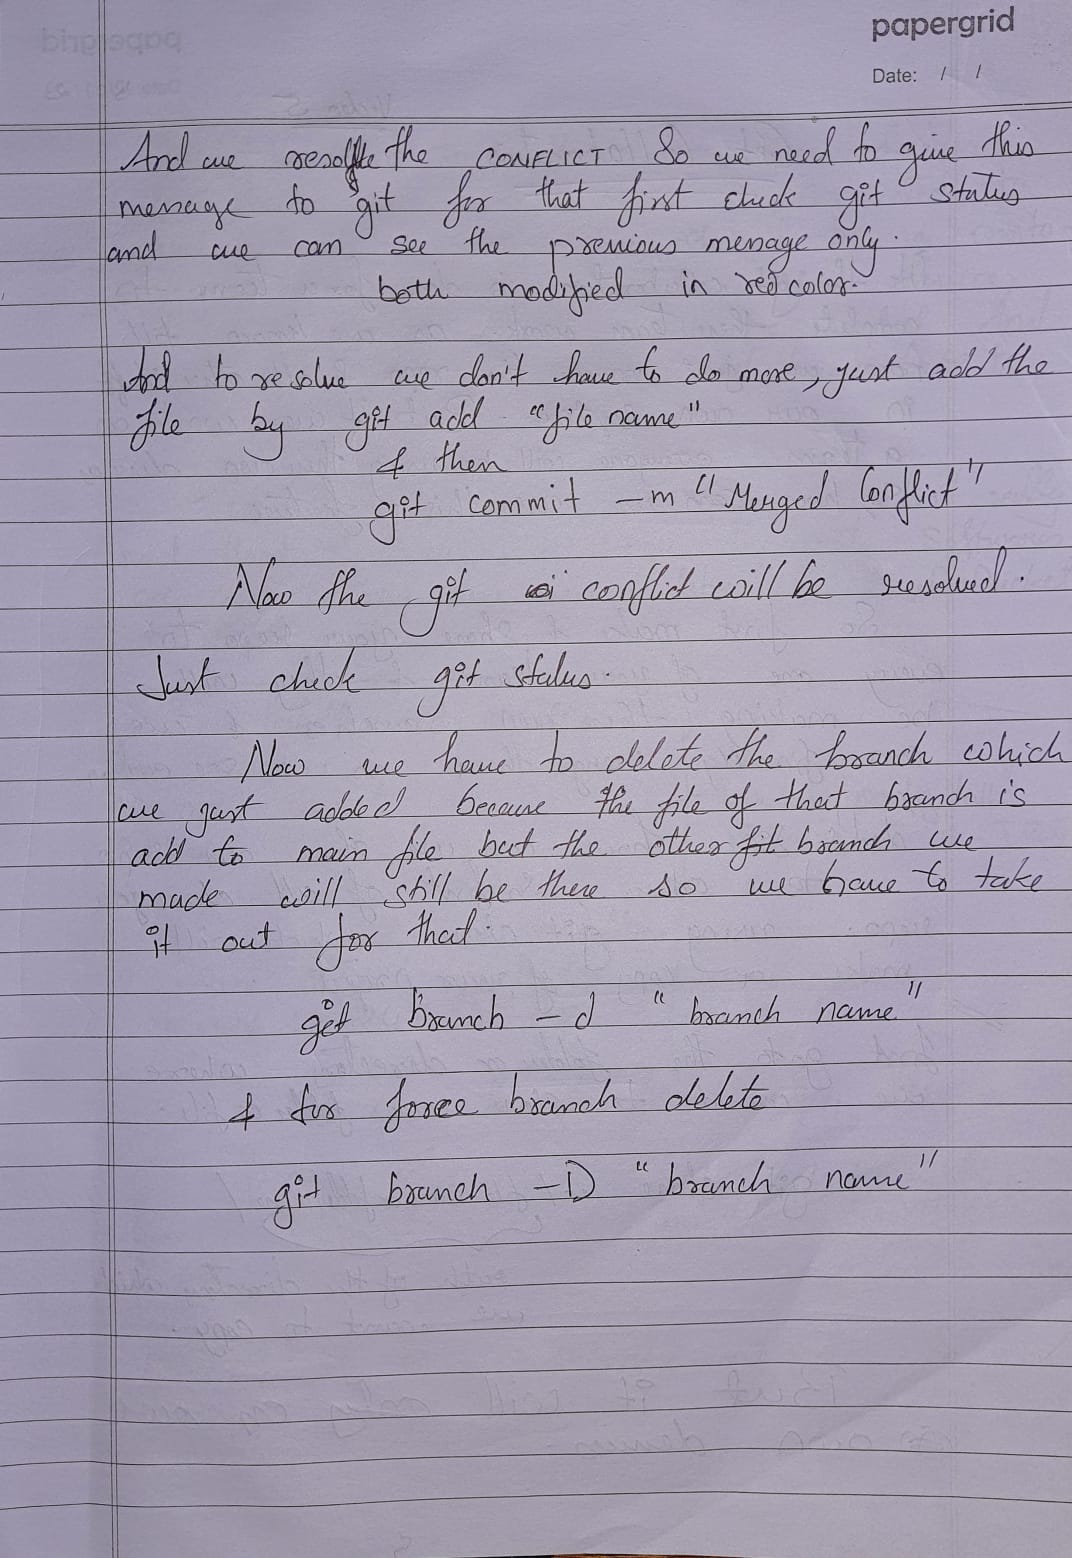 papergrid
Date: / /
And we resolve the CONFLICT So we need to give this
message to git for that first check git status
and we can see the previous message only.
both modified in red color.
And to resolve we don't have to do more, just add the
file by git add "file name"
& then
git commit -m "Merged Conflict"
Now the git conflict will be resolved.
Just check git status.
Now we have to delete the branch which
we just added because the file of that branch is
add to main file but the other branch we
made will still be there so we have to take
it out for that.
git branch -d "branch name"
& for force branch delete
git branch -D "branch name"